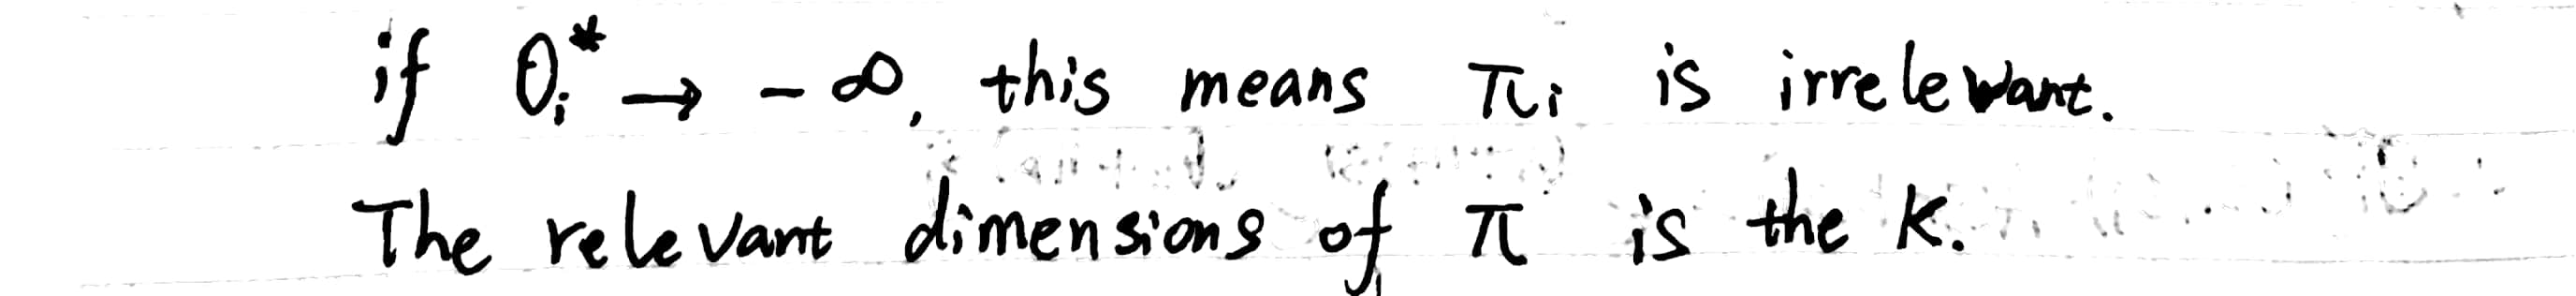 if θᵢ* → -∞, this means πᵢ is irrelevant.
The relevant dimensions of π is the K.